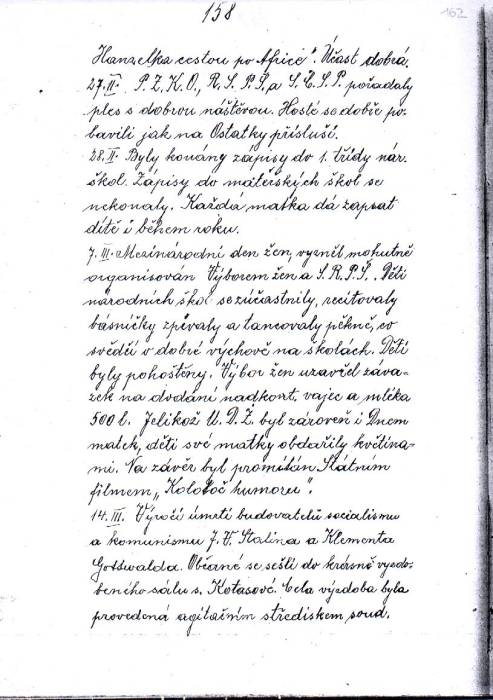 158
162
Hanzelka cestou po Africe". Účast dobrá.
27.II. P.Z.K.O, R.S.P.Š, a S.Č.S.P. pořádaly
ples s dobrou návštěvou. Hosté se dobře po-
bavili jak na Ostatky přísluší.
28.II. Byly konány zápisy do 1. třídy nár.
škol. Zápisy do mateřských škol se
nekonaly. Každá matka dá zapsat
dítě i během roku.
7.III. Mezinárodní den žen, vyzněl mohutně
organisován Výborem žen a S.R.P.Š. Děti
národních škol se zúčastnily, recitovaly
básničky zpívaly a tancovaly pěkně, co
svědčí o dobré výchově na školách. Děti
byly pohoštěny. Výbor žen uzavřel záva-
zek na dodání nadkont. vajec a mléka
500 l. Jelikož M.D.Ž. byl zároveň i Dnem
matek, děti své matky obdařily květina-
mi. Na závěr byl promítán Státním
filmem „Kolotoč humoru".
14.III. Výročí úmrtí budovatelů socialismu
a komunismu J.V. Stalina a Klementa
Gottwalda. Občané se sešli do krásně vyzdo-
beného sálu s. Kotasové. Cela výzdoba byla
provedená agitačním střediskem soud.